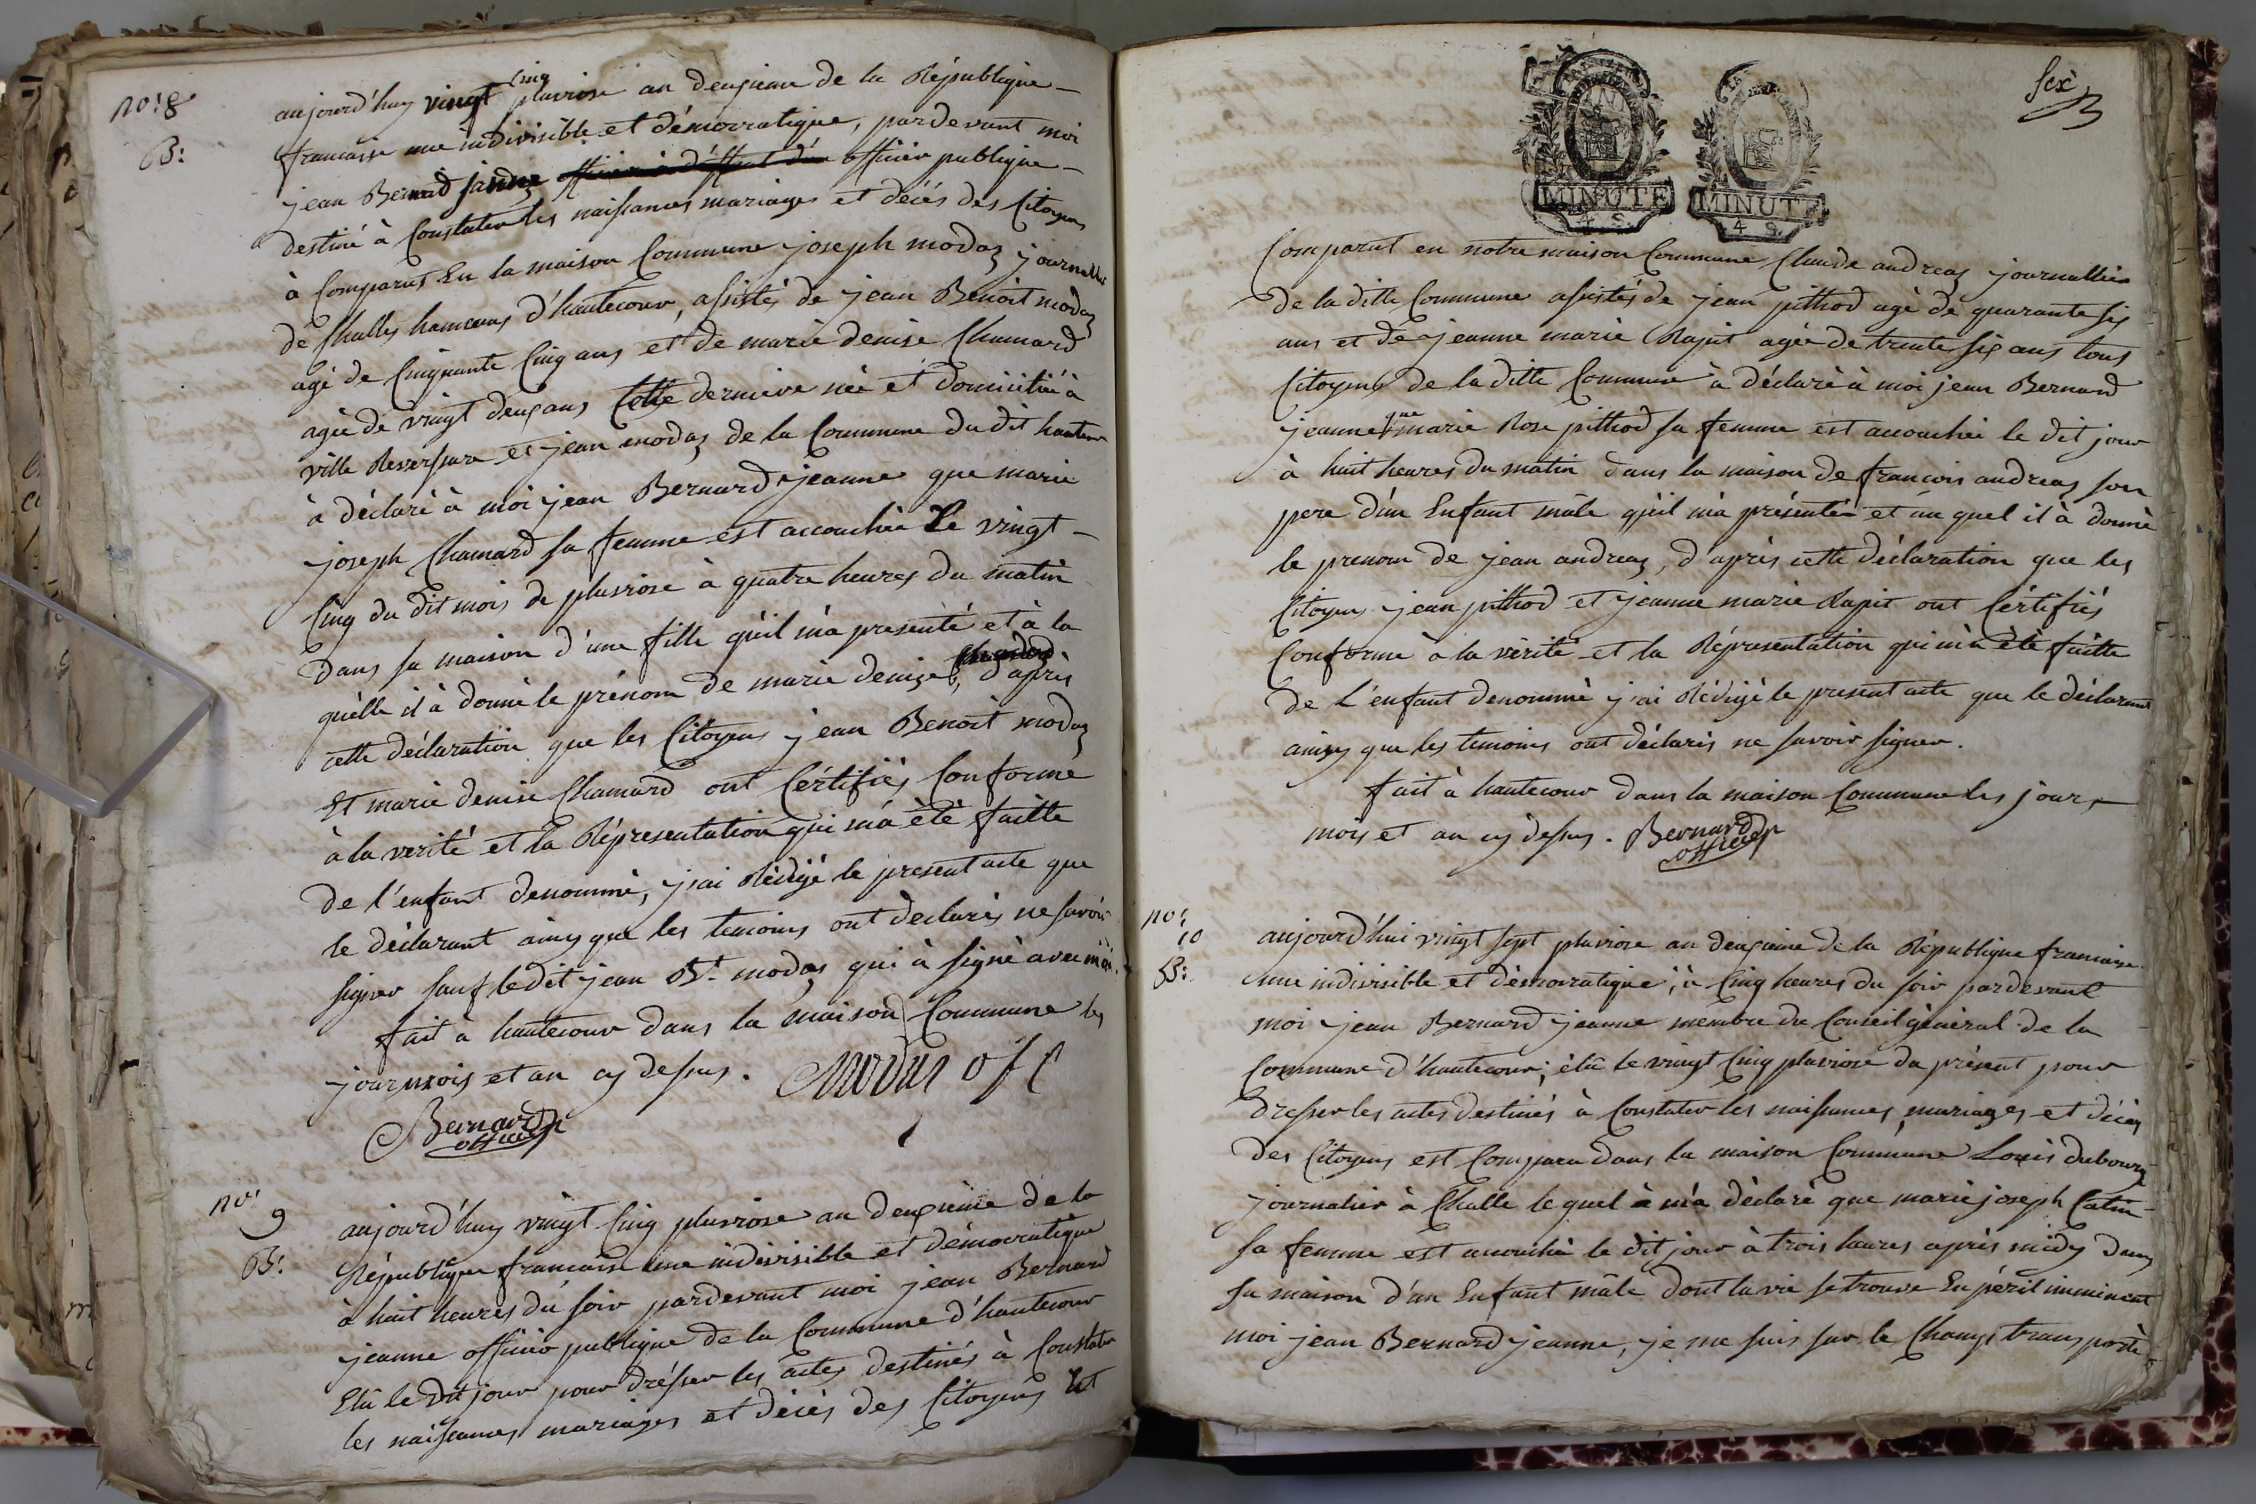 no: 8
B:
aujourd'huy vingt cinq pluviose an deuxieme de la République
francaise une indivisible et démocratique, pardevant moi
jean Bernard jeanne officier publique
destiné à Constater les naissances mariages et décés des Citoyens
à Comparus En la maison Commune joseph modaz journallier
de Challes hameaux d'hautecour, assistés de jean Benoit modaz
agé de Cinquante Cinq ans et de marie denise Chamard
agée de vingt deux ans cette derniere née et domicilié à
ville Reversure et jean modaz de la Commune du dit hautecour
à déclaré à moi jean Bernard jeanne que marie
joseph Chamard sa femme est accouchée Le vingt
Cinq du dit mois de pluviose à quatre heures du matin
dans sa maison d'une fille qu'il m'a presenté et à la
quelle il à donné le prénom de marie denise, d'après
cette déclaration que les Citoyens jean Benoit modaz
Et marie denise Chamard ont Cértifiés Conforme
à la verité et la Répresentation qui m'a été faitte
de l'enfant denommé, j'ai Rédigé le present acte que
le déclarant ainsy que les temoins ont declarés ne savoir
signer sauf ledit jean Bt. modaz qui à signé avec moi.
fait à hautecour dans la maison Commune les
jour mois et an cy dessus. modaz off
Bernard
officier
no: 9
B:
aujourd'huy vingt Cinq pluviose an deuxième de la
République francaise une indivisible et démocratique
à huit heures du soir pardevant moi jean Bernard
jeanne officier publique de la Commune d'hautecour
Elû le dit jour pour drésser les actes destinés à Constater
les naissances mariages et décés des Citoyens Est
six
MINUTE
4 S.
MINUTE
4 S.
Comparut en notre maison Commune Claude andreaz journallier
de la ditte Commune assistés de jean pithod agé de quarante six
ans et de jeanne marie Rapit agée de trente six ans tous
Citoyens de la ditte Commune à déclaré à moi jean Bernard
jeanne que marie Rose pithod sa femme est accouchée le dit jour
à huit heures du matin dans la maison de francois andreaz son
pere d'un Enfant mâle qu'il m'a présenté et au quel il à donné
le prenom de jean andreaz, d'après cette déclaration que les
Citoyens jean pithod et jeanne marie Rapit ont Cértifiés
Conforme à la vérité et la Répresentation qui m'a été faitte
de L'enfant denommé j'ai Rédigé le present acte que le déclarant
ainsy que les temoins ont déclarés ne savoir signer.
fait à hautecour dans la maison Commune les jours
mois et an cy dessus. Bernard
officier
no:
10
B:
aujourd'hui vingt sept pluviose an deuxieme de la République francaise
une indivisible et démocratique, à Cinq heures du soir pardevant
moi jean Bernard jeanne membre du Conseil général de la
Commune d'hautecour, élû le vingt Cinq pluviose du présent pour
dresser les actes destinés à Constater les naissances, mariages et décés
des Citoyens est Comparu dans la maison Commune Louis dubourg
journalier à Challe le quel à m'a déclaré que marie joseph Catin
sa femme est accouchée le dit jour à trois heures après midy dans
sa maison d'un Enfant mâle dont la vie se trouve En péril imminent
moi jean Bernard jeanne, je me suis sur le Champs transporté